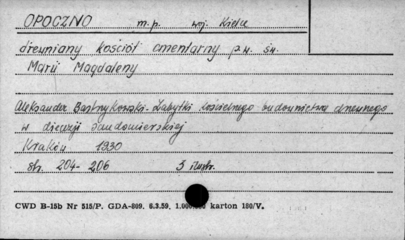 OPOCZNO m.p. woj. Kielce
drewniany kościół cmentarny p.w. św.
Marii Magdaleny
Aleksander Bastrzykowski - Zabytki kościelnego budownictwa drewnego
w diecezji Sandomierskiej
Kraków 1930
str. 204-206 3 ilustr.
CWD B-15b Nr 515/P. GDA-809. 6.3.59. karton 180/V.